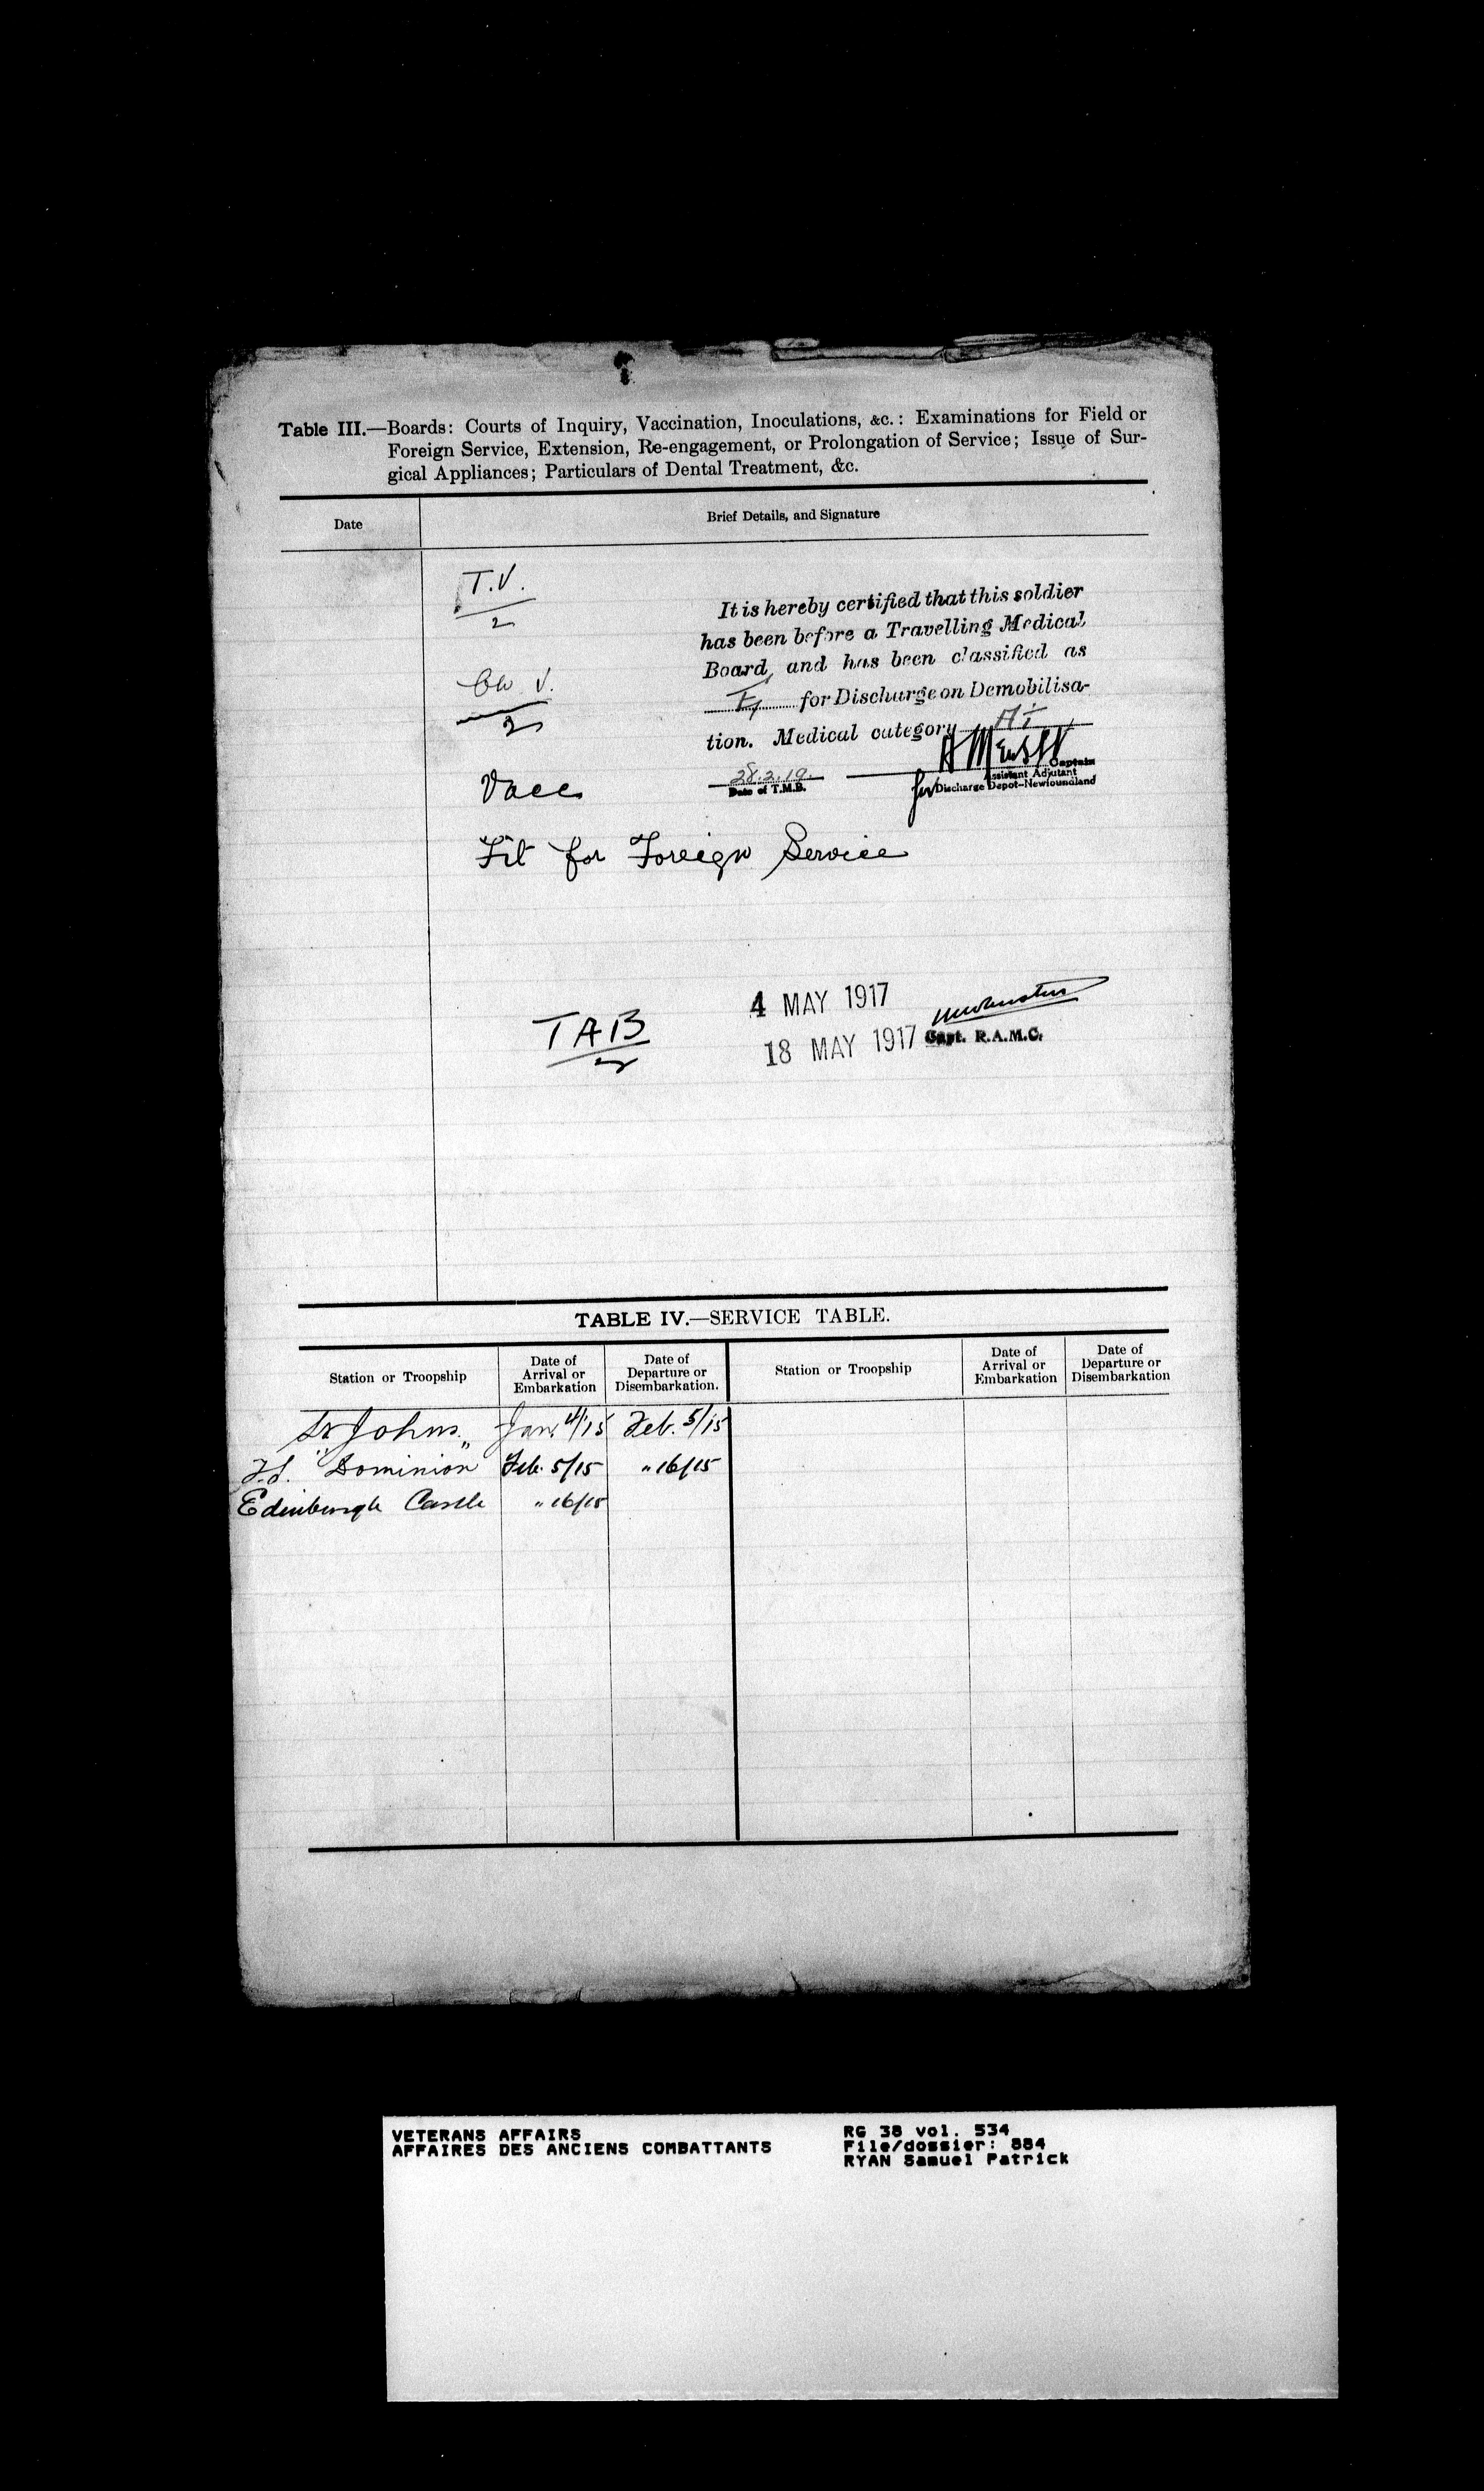 Table III.—Boards: Courts of Inquiry, Vaccination, Inoculations, &c.: Examinations for Field or
Foreign Service, Extension, Re-engagement, or Prolongation of Service; Issue of Sur-
gical Appliances; Particulars of Dental Treatment, &c.
Date
Brief Details, and Signature
T.V.
2
It is hereby certified that this soldier
has been before a Travelling Medical
Board, and has been classified as
for Discharge on Demobilisa-
V.
2
tion. Medical category
28.2.19.
Date of T.M.B.
Captain
Assistant Adjutant
for Discharge Depot-Newfoundland
Vacc
Fit for Foreign Service
TAB
2
4 MAY 1917
18 MAY 1917
Capt. R.A.M.C.
TABLE IV.—SERVICE TABLE.
Station or Troopship
Date of Arrival or Embarkation
Date of Departure or Disembarkation.
Station or Troopship
Date of Arrival or Embarkation
Date of Departure or Disembarkation
St Johns. Jan. 4/15 Feb. 5/15
"Dominion" Feb. 5/15 " 16/15
Edinburgh Castle " 16/15
VETERANS AFFAIRS
AFFAIRES DES ANCIENS COMBATTANTS
RG 38 vol. 534
File/dossier: 884
RYAN Samuel Patrick